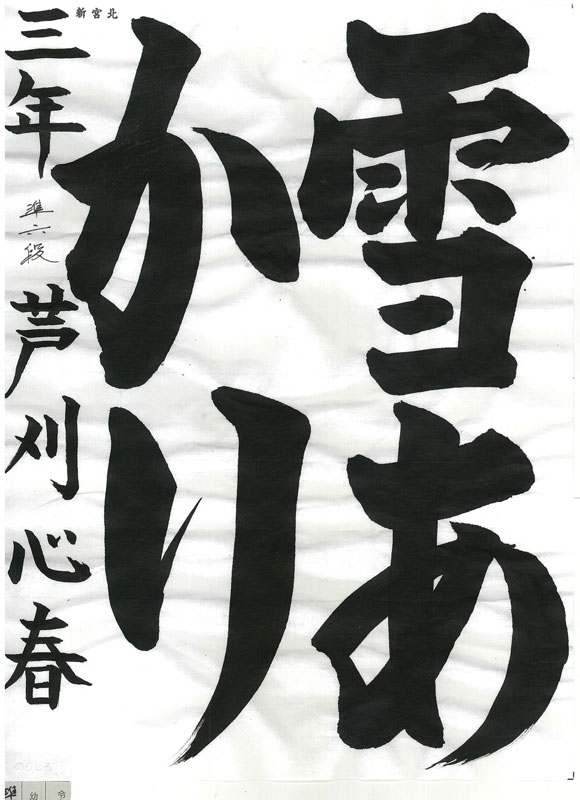 雪あ
かり
新宮北
三年 準六段 芦刈心春
のらしろ
準 幼 令